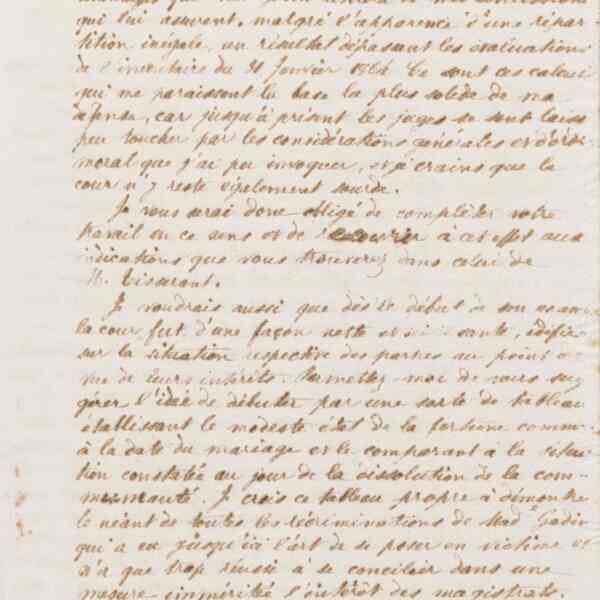 qui lui assurent, malgré l'apparence d'une répar-
tition inégale, un résultat dépassant les évaluations
de l'inventaire du 31 Janvier 1864. Ce sont ces calculs
qui me paraissent la base la plus solide de ma
défense, car jusqu'à présent les juges se sont laissé
peu toucher par les considérations générales et d'ordre
moral que j'ai pu invoquer, et je crains que la
cour n'y reste également sourde.
Je vous serai donc obligé de compléter votre
travail en ce sens et de recourir à cet effet aux
indications que vous trouverez dans celui de
M. Tisserant.
Je voudrais aussi que dès le début de son examen
la cour fut d'une façon nette et , édifiée
sur la situation respective des parties au point de
vue de leurs intérêts. Permettez-moi de vous sug
gérer l'idée de débuter par une sorte de tableau
établissant le modeste état de la fortune commune
à la date du mariage et le comparant à la situa
tion constatée au jour de la dissolution de la com-
munauté. Je crois ce tableau propre à démontrer
le néant de toutes les récriminations de Mad.e Godin
qui a eu jusqu'ici l'art de se poser en victime et
n'a que trop réussi à se concilier dans une
mesure imméritée l'intérêt des magistrats.